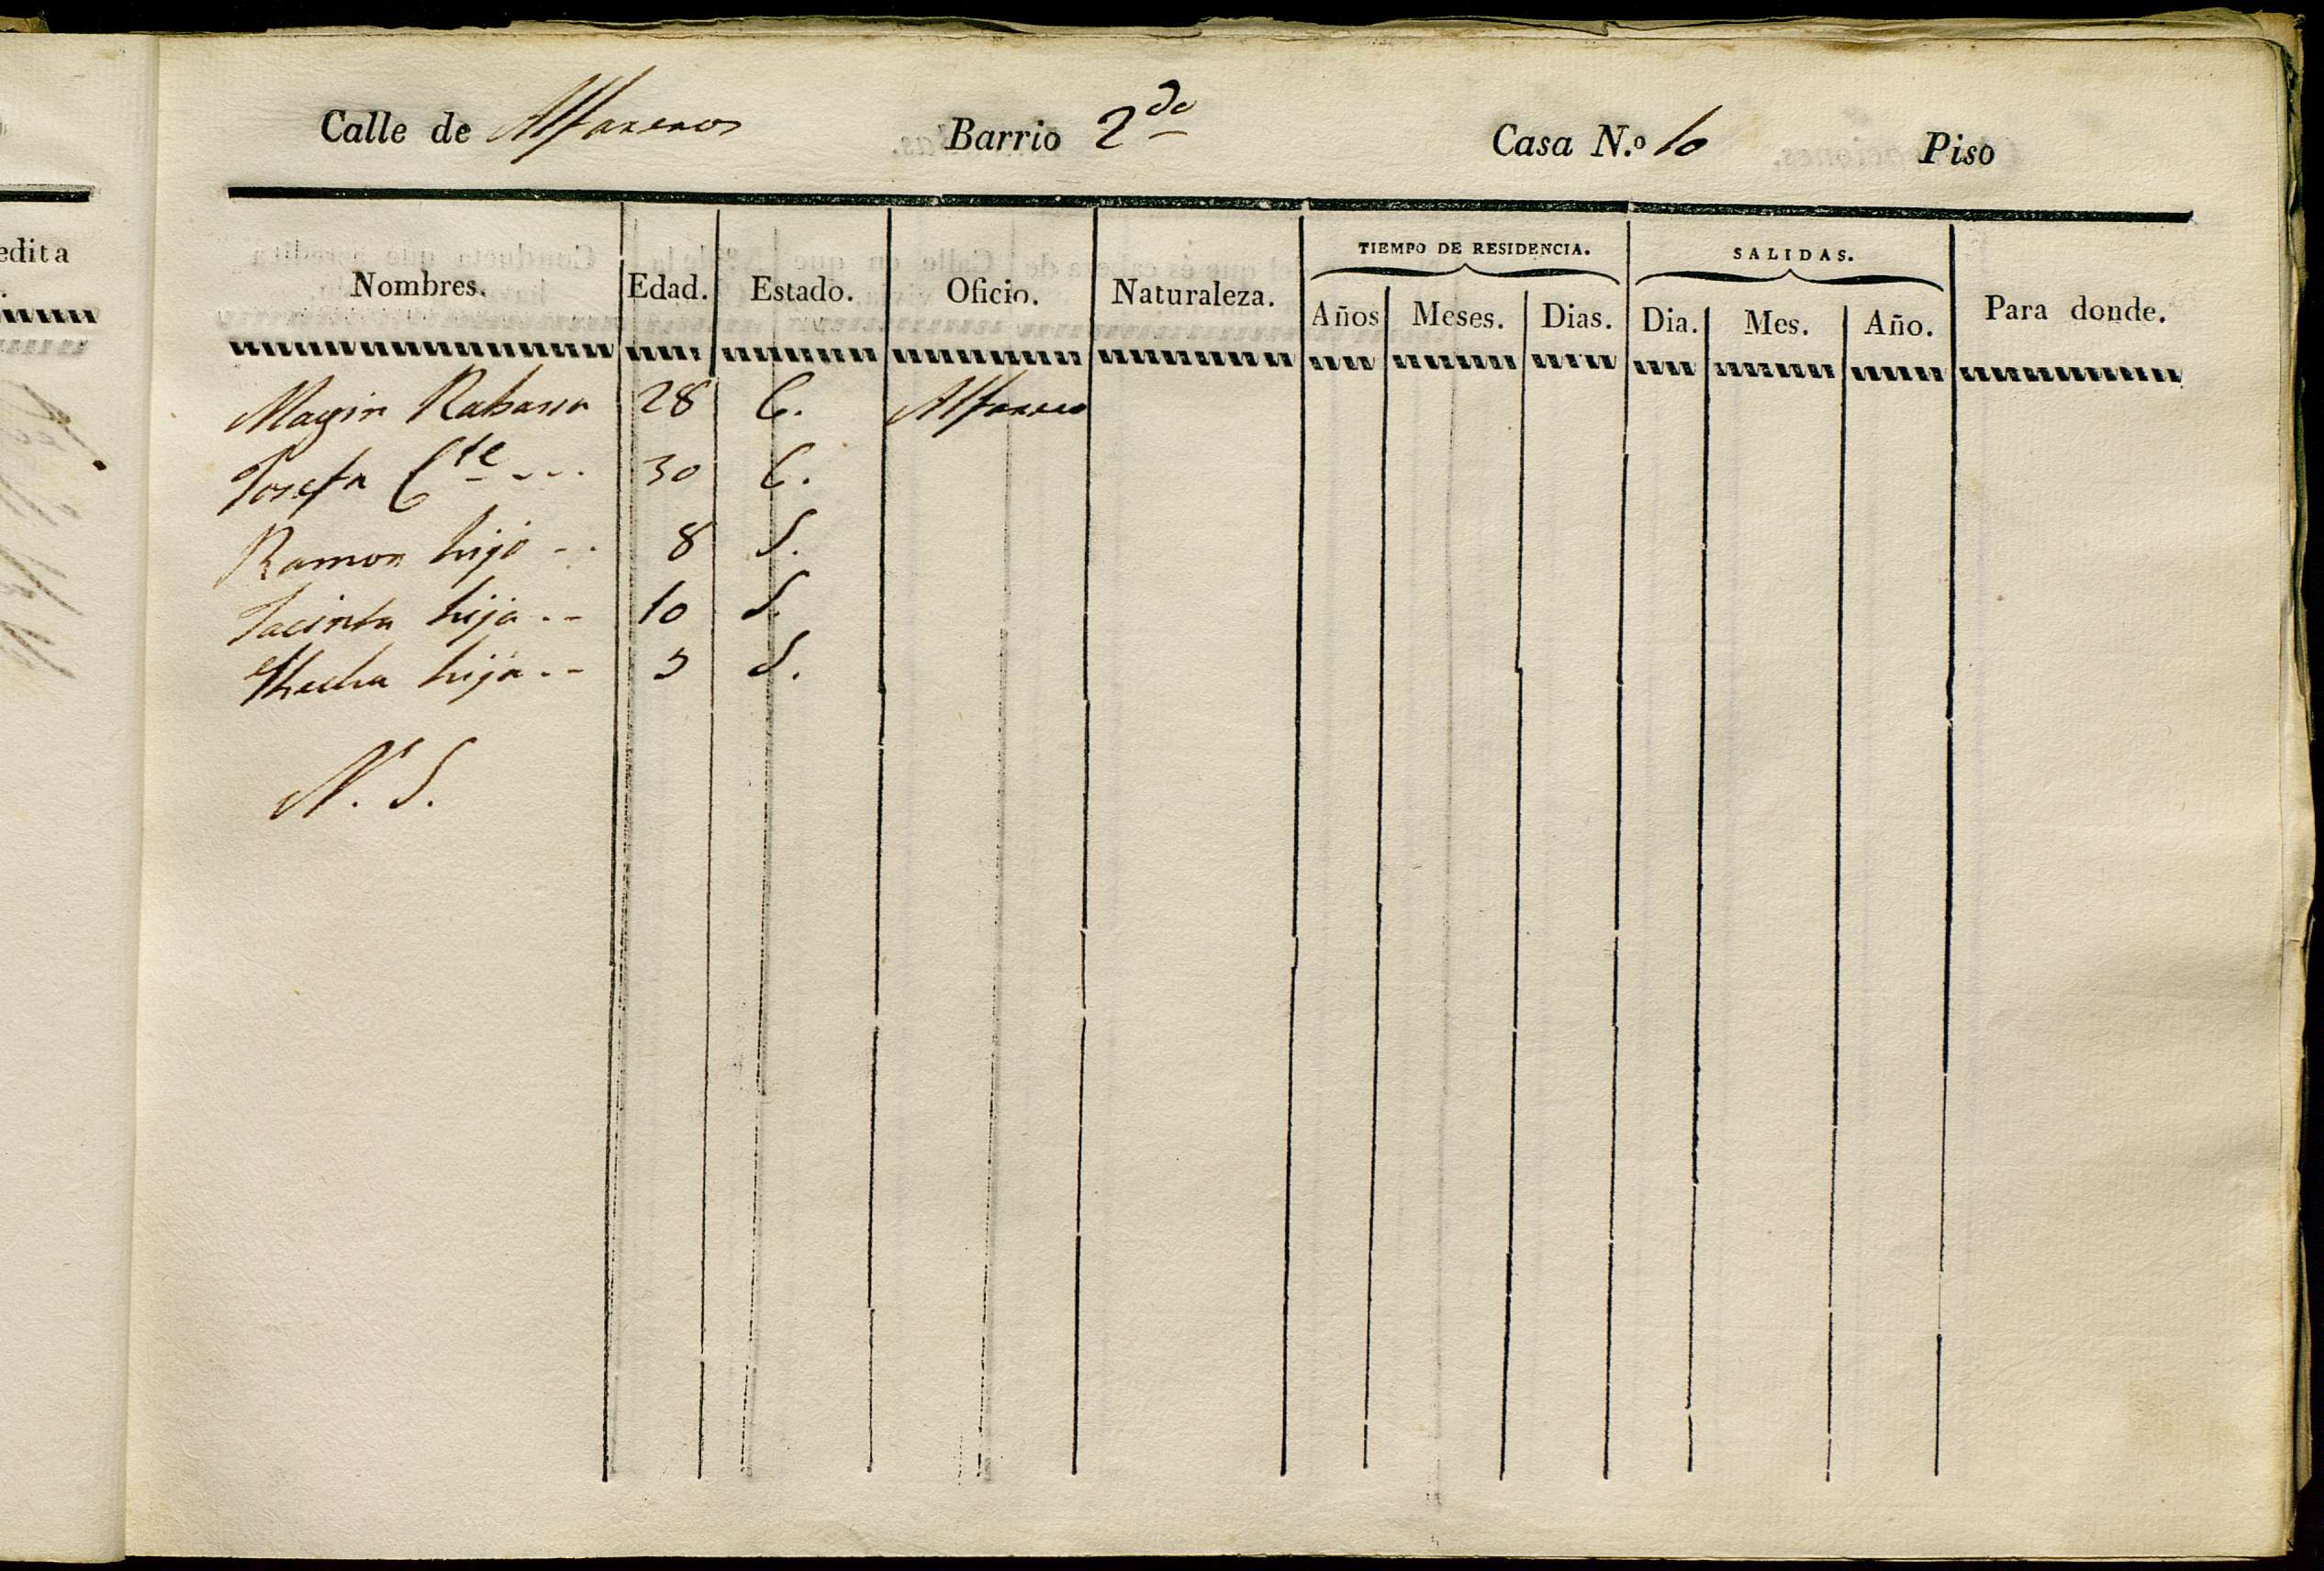 edita
Calle de Alfareros Barrio 2do Casa N.º 10 Piso
TIEMPO DE RESIDENCIA. SALIDAS.
Nombres. Edad. Estado. Oficio. Naturaleza. Años Meses. Dias. Dia. Mes. Año. Para donde.
Magin Rabassa 28 C. Alfarero
Josefa Cte - - - 30 C.
Ramon hijo - - 8 S.
Jacinta hija - - 10 S.
hija - - S.
N. S.